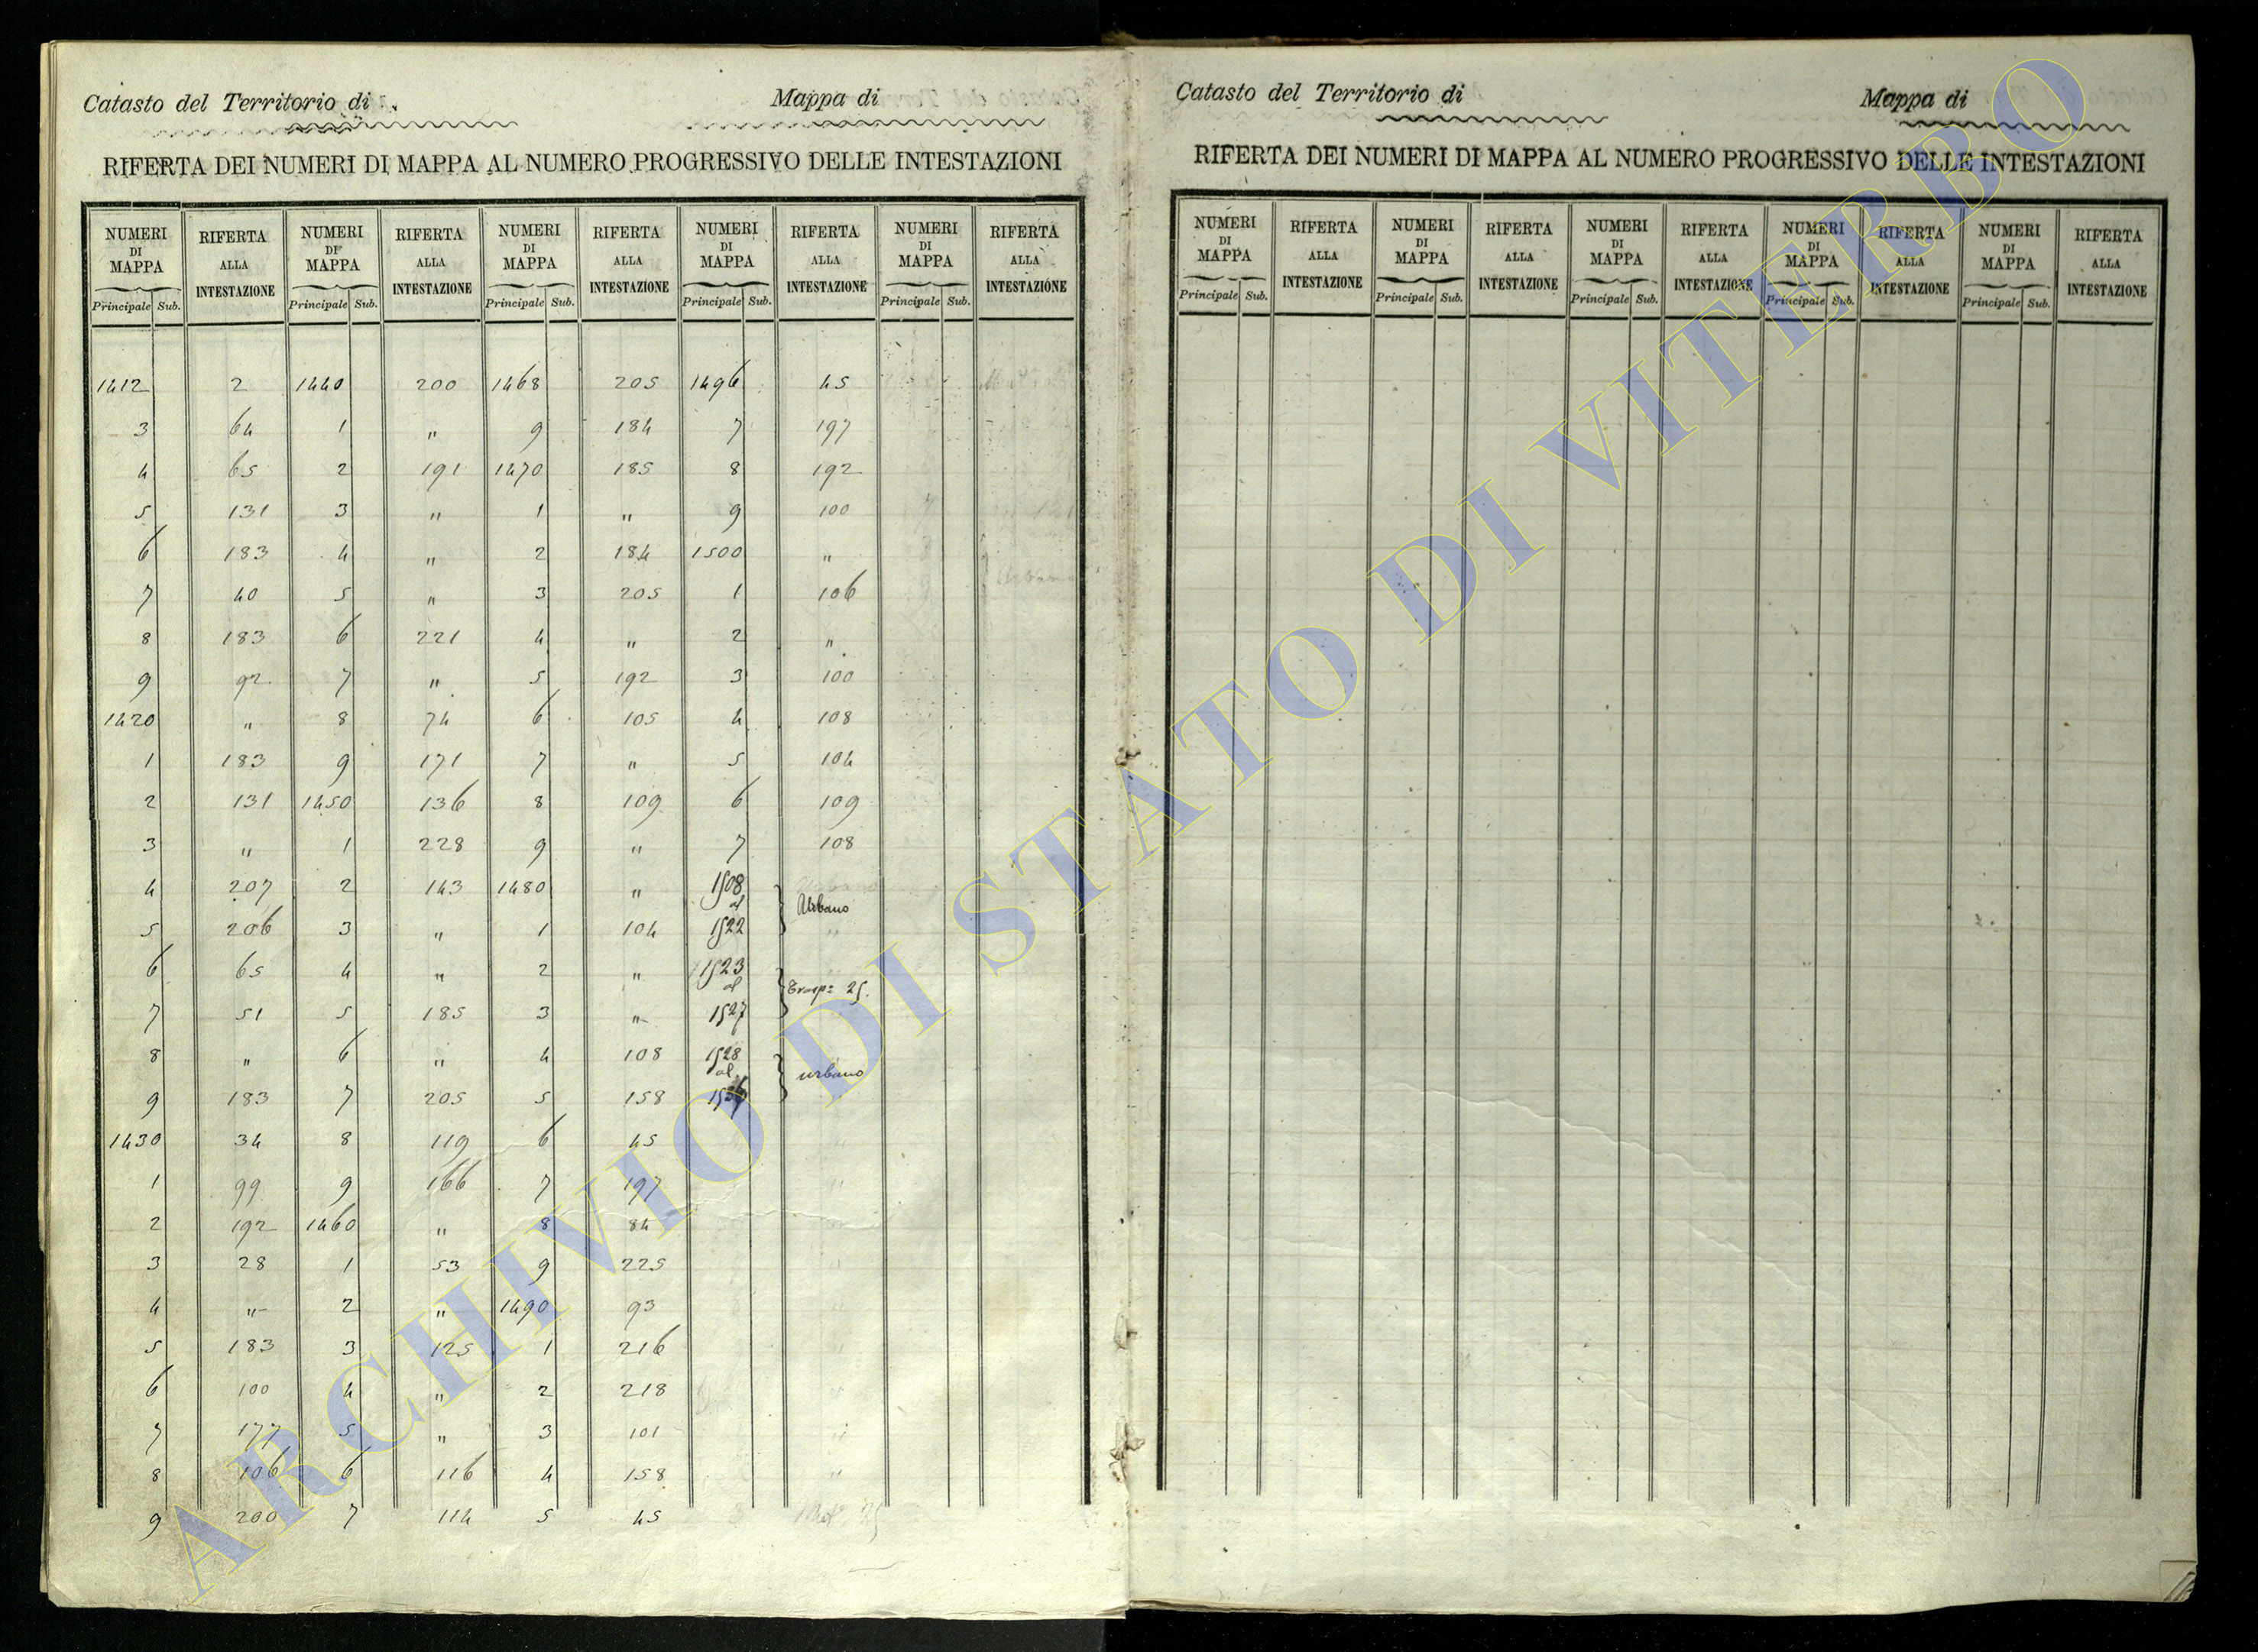 Catasto del Territorio di
Mappa di
RIFERTA DEI NUMERI DI MAPPA AL NUMERO PROGRESSIVO DELLE INTESTAZIONI
NUMERI DI MAPPA RIFERTA ALLA INTESTAZIONE NUMERI DI MAPPA RIFERTA ALLA INTESTAZIONE NUMERI DI MAPPA RIFERTA ALLA INTESTAZIONE NUMERI DI MAPPA RIFERTA ALLA INTESTAZIONE NUMERI DI MAPPA RIFERTA ALLA INTESTAZIONE
Principale Sub. Principale Sub. Principale Sub. Principale Sub. Principale Sub.
1412 2 1440 200 1468 205 1496 45
3 64 1 " 9 184 7 197
4 65 2 191 1470 185 8 192
5 131 3 " 1 " 9 100
6 183 4 " 2 184 1500 "
7 40 5 " 3 205 1 106
8 183 6 221 4 " 2 "
9 92 7 " 5 192 3 100
1420 " 8 74 6 105 4 108
1 183 9 171 7 " 5 104
2 131 1450 136 8 109 6 109
3 " 1 228 9 " 7 108
4 207 2 143 1480 " 1508
al Urbano
5 206 3 " 1 104 1522
6 65 4 " 2 " 1523
al 25.
7 51 5 185 3 " 1527
8 " 6 " 4 108 1528
al urbano
9 183 7 205 5 158
1430 34 8 119 6 45
1 99 9 166 7 197
2 192 1460 " 8 84
3 28 1 53 9 225
4 " 2 " 1490 93
5 183 3 125 1 216
6 100 4 " 2 218
7 177 5 " 3 101
8 106 6 116 4 158
9 200 7 114 5 45
Catasto del Territorio di
Mappa di
RIFERTA DEI NUMERI DI MAPPA AL NUMERO PROGRESSIVO DELLE INTESTAZIONI
NUMERI DI MAPPA RIFERTA ALLA INTESTAZIONE NUMERI DI MAPPA RIFERTA ALLA INTESTAZIONE NUMERI DI MAPPA RIFERTA ALLA INTESTAZIONE NUMERI DI MAPPA RIFERTA ALLA INTESTAZIONE NUMERI DI MAPPA RIFERTA ALLA INTESTAZIONE
Principale Sub. Principale Sub. Principale Sub. Principale Sub. Principale Sub.
ARCHIVIO DI STATO DI VITERBO